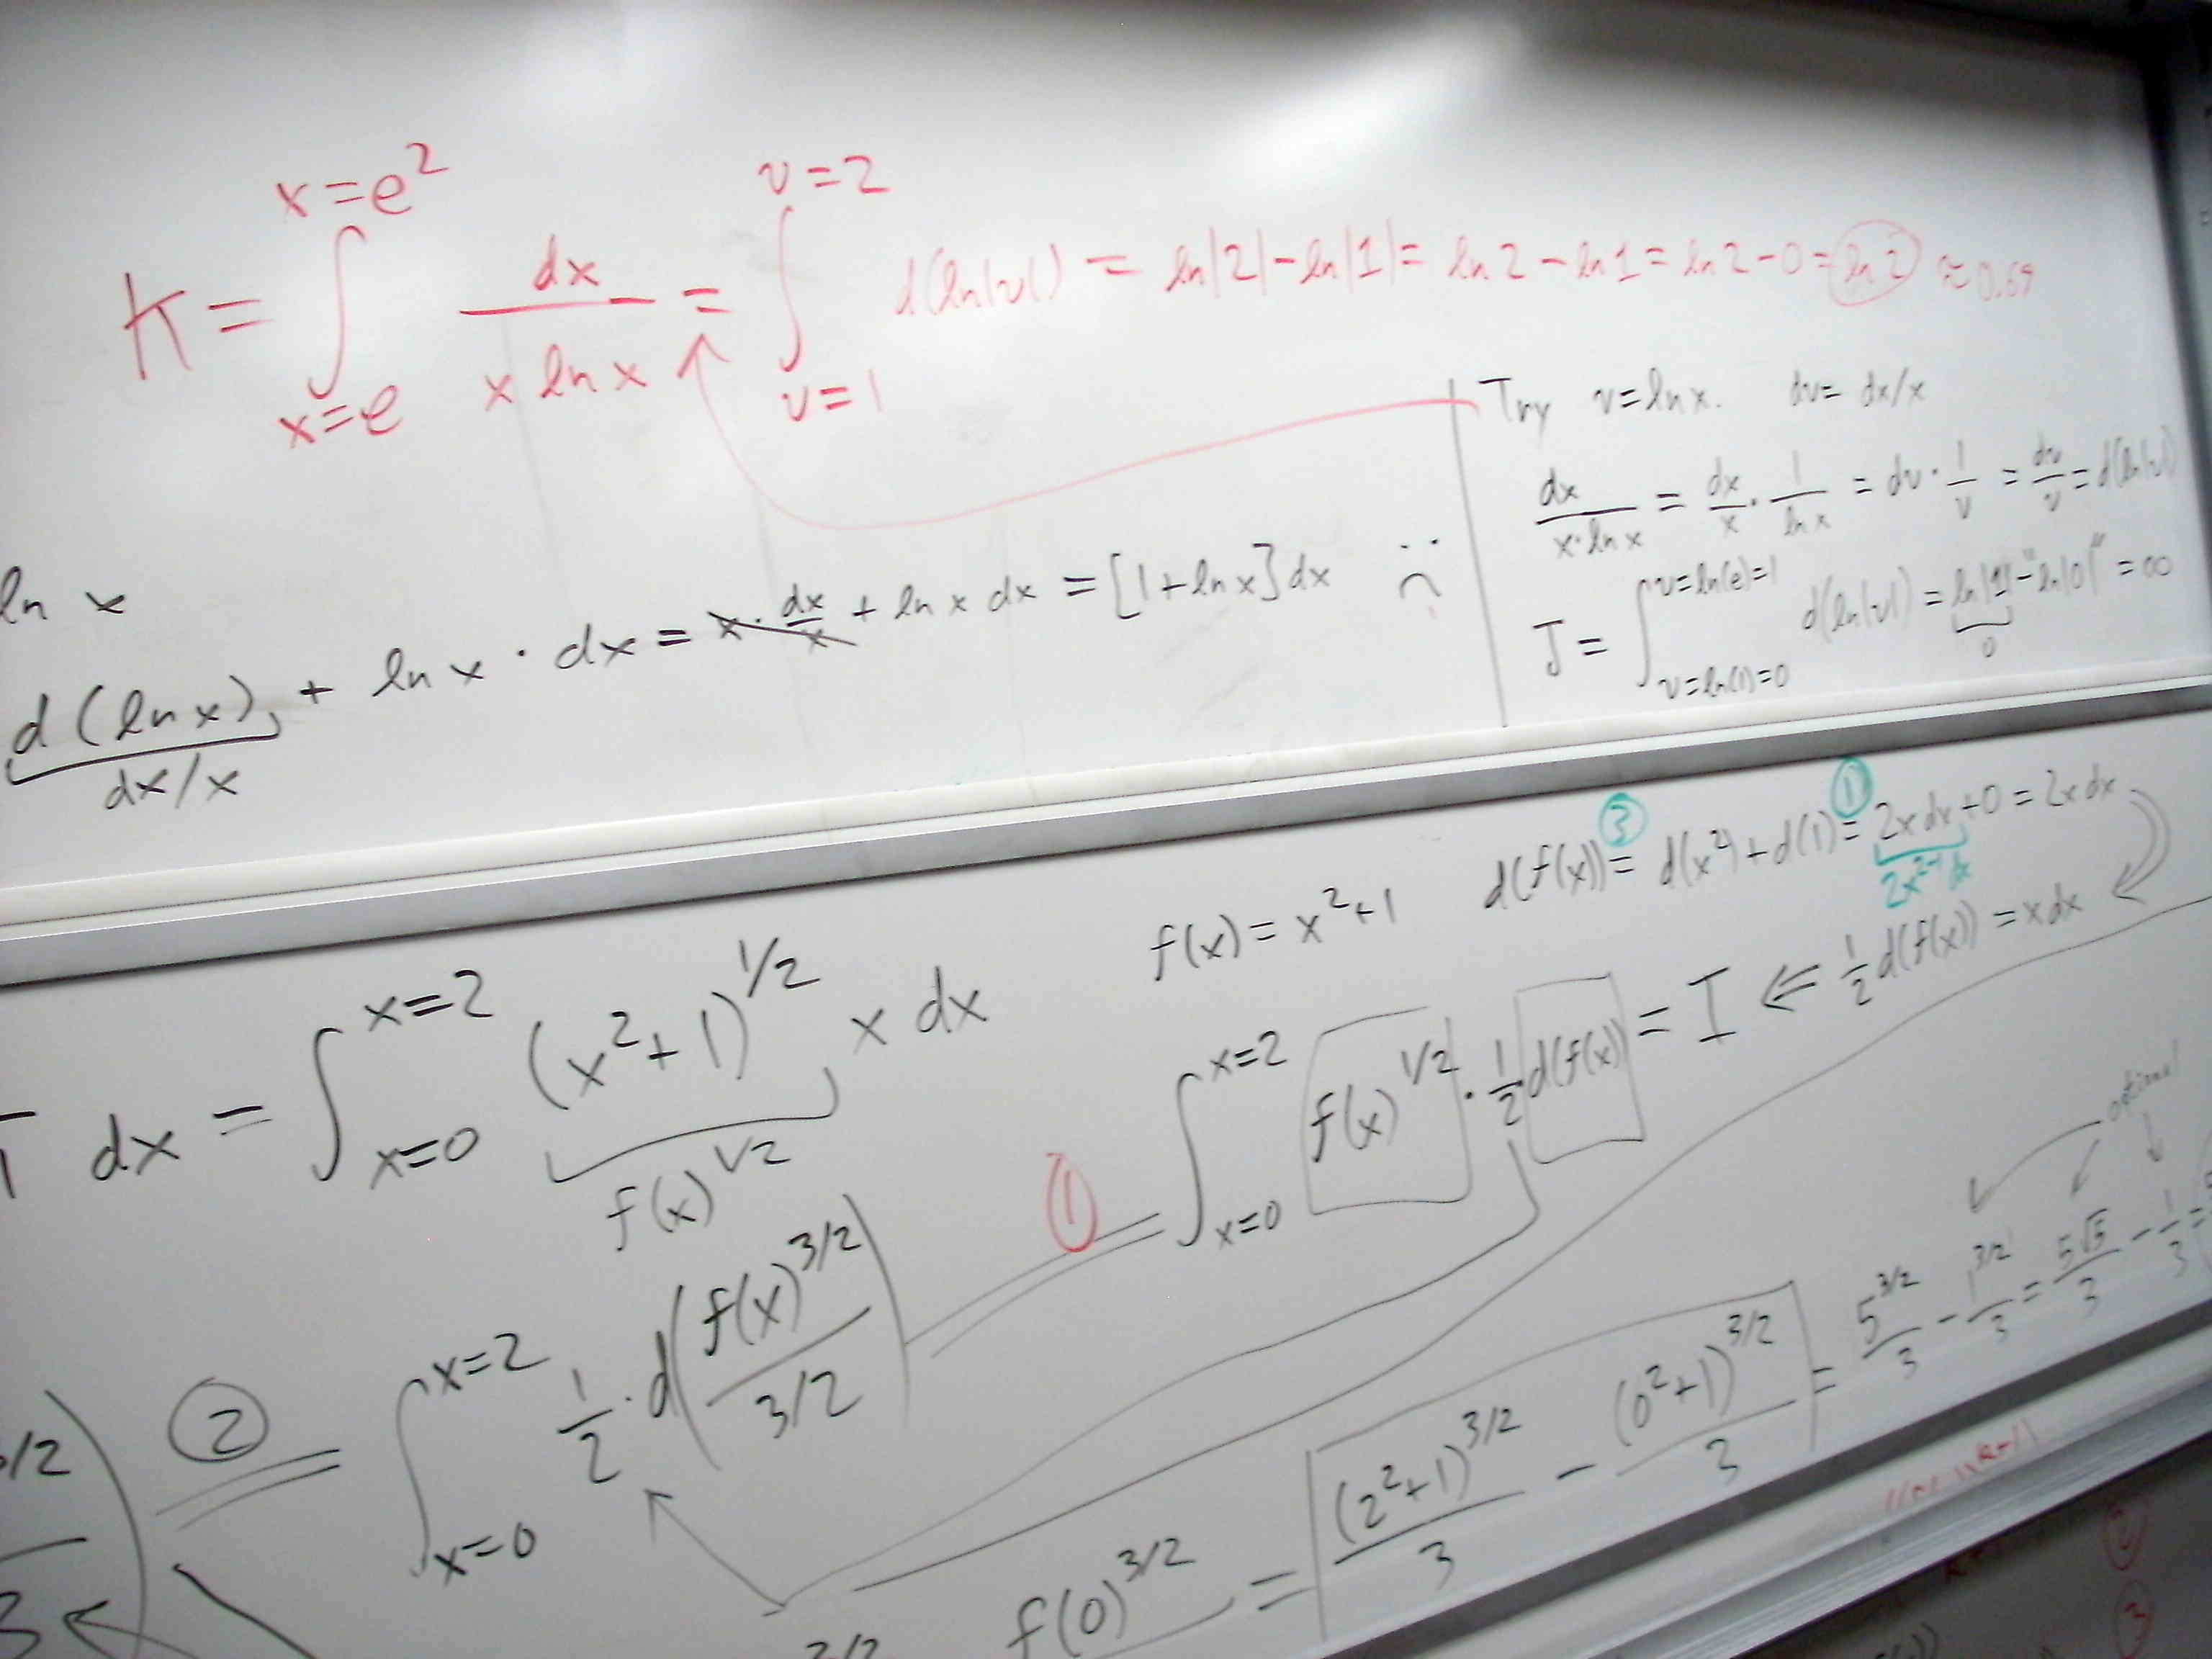 K = ∫_{x=e}^{x=e^2} dx/(x ln x) = ∫_{v=1}^{v=2} d(ln|v|) = ln|2| - ln|1| = ln 2 - ln 1 = ln 2 - 0 = ln 2 ≈ 0.69
Try v = ln x. dv = dx/x
dx/(x·ln x) = dx/x · 1/(ln x) = dv · 1/v = dv/v = d(ln|v|)
J = ∫_{v=ln(1)=0}^{v=ln(e)=1} d(ln|v|) = ln|1| - "ln|0|" = ∞
0
ln x
d(ln x) + ln x · dx = x · dx/x + ln x dx = [1 + ln x] dx
dx/x
f(x) = x^2+1
d(f(x)) = d(x^2) + d(1) = 2x dx + 0 = 2x dx
③ ①
2x^{2-1} dx
1/2 d(f(x)) = x dx
dx = ∫_{x=0}^{x=2} (x^2+1)^{1/2} x dx
f(x)^{1/2}
∫_{x=0}^{x=2} f(x)^{1/2} · 1/2 d(f(x)) = I ⇐
①
optional
3/2
3
② = ∫_{x=0}^{x=2} 1/2 · d(f(x)^{3/2}/(3/2))
3/2 f(0)^{3/2} = (2^2+1)^{3/2}/3 - (0^2+1)^{3/2}/3 = 5^{3/2}/3 - 1^{3/2}/3 = 5√5/3 - 1/3 =
②
③